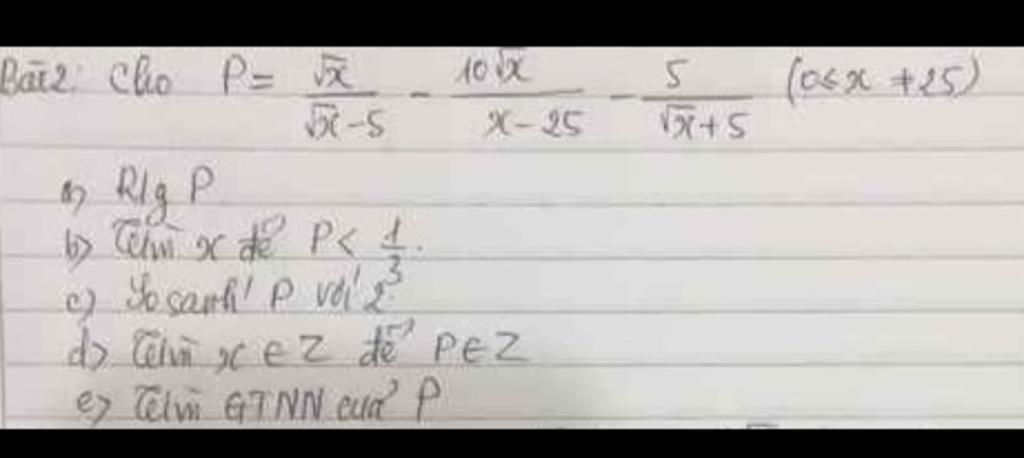 Bài 2: Cho P = √x / (√x - 5) - 10√x / (x - 25) - 5 / (√x + 5) (0 ≤ x ≠ 25)
a) R/g P
b) Tìm x để P < 1/3.
c) So sánh P với 2.
d) Tìm x ∈ Z để P ∈ Z
e) Tìm GTNN của P